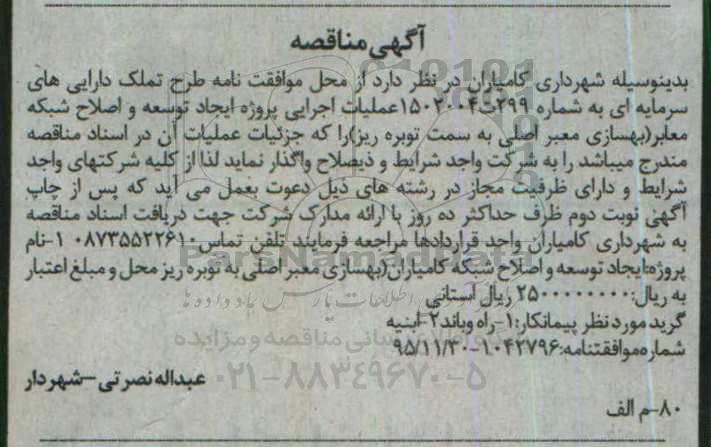 آگهی مناقصه
بدینوسیله شهرداری کامیاران در نظر دارد از محل موافقت نامه طرح تملک دارایی های
سرمایه ای به شماره ۲۹۹ت۱۵۰۲۰۰۴عملیات اجرایی پروژه ایجاد توسعه و اصلاح شبکه
معابر(بهسازی معبر اصلی به سمت توبره ریز)را که جزئیات عملیات آن در اسناد مناقصه
مندرج میباشد را به شرکت واجد شرایط و ذیصلاح واگذار نماید لذا از کلیه شرکتهای واجد
شرایط و دارای ظرفیت مجاز در رشته های ذیل دعوت بعمل می آید که پس از چاپ
آگهی نوبت دوم ظرف حداکثر ده روز با ارائه مدارک شرکت جهت دریافت اسناد مناقصه
به شهرداری کامیاران واحد قراردادها مراجعه فرمایند تلفن تماس۰۸۷۳۵۵۲۲۶۱۰ ۱-نام
پروژه:ایجاد توسعه و اصلاح شبکه کامیاران(بهسازی معبر اصلی به توبره ریز محل و مبلغ اعتبار
به ریال:۲۵۰۰۰۰۰۰۰۰۰ ریال استانی
گرید مورد نظر پیمانکار:۱-راه وباند۲-ابنیه
شماره‌موافقتنامه:۱۰۴۲۷۹۶-۹۵/۱۱/۳۰
عبداله نصرتی-شهردار
۸۰-م الف
ParsNamadData
۰۲۱-۸۸۳۴۹۶۷۰-۵